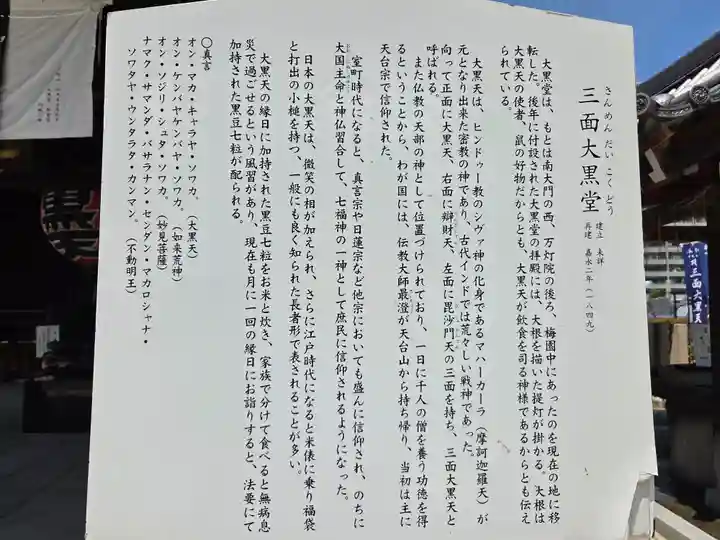 さんめんだいこくどう
三面大黒堂
建立 未詳
再建 嘉永二年(一八四九)
大黒堂は、もとは南大門の西、万灯院の後ろ、梅園中にあったのを現在の地に移
転した。後年に付設された大黒堂の拝殿には、大根を描いた提灯が掛かる。大根は
大黒天の使者、鼠の好物だからとも、大黒天が飲食を司る神様であるからとも伝え
られている。
大黒天は、ヒンドゥー教のシヴァ神の化身であるマハーカーラ(摩訶迦羅天)が
元となり出来た密教の神であり、古代インドでは荒々しい戦神であった。
向って正面に大黒天、右面に辯財天、左面に毘沙門天の三面を持ち、三面大黒天と
呼ばれる。
また仏教の天部の神として位置づけられており、一日に千人の僧を養う功徳を得
るということから、わが国には、伝教大師最澄が天台山から持ち帰り、当初は主に
天台宗で信仰された。
室町時代になると、真言宗や日蓮宗など他宗においても盛んに信仰され、のちに
大国主命と神仏習合して、七福神の一神として庶民に信仰されるようになった。
日本の大黒天は、微笑の相が加えられ、さらに江戸時代になると米俵に乗り福袋
と打出の小槌を持つ、一般にも良く知られた長者形で表されることが多い。
大黒天の縁日に加持された黒豆七粒をお米と炊き、家族で分けて食べると無病息
災で過ごせるという風習があり、現在も月に一回の縁日にお詣りすると、法要にて
加持された黒豆七粒が配られる。
〇真言
オン・マカ・キャラヤ・ソワカ。(大黒天)
オン・ケンバヤケンバヤ・ソワカ。(如来荒神)
オン・ソヂリ・シュタ・ソワカ。(妙見菩薩)
ナマク・サマンダ・バサラナン・センダン・マカロシャナ・
ソワタヤ・ウンタラタ・カンマン。(不動明王)
三面大黒天
黒